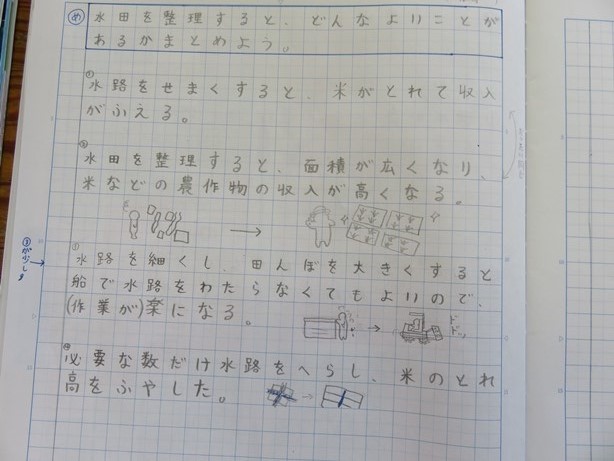 め 水田を整理すると、どんなよいことが
あるかまとめよう。
水路をせまくすると、米がとれて収入
がふえる。
水田を整理すると、面積が広くなり、
米などの農作物の収入が高くなる。
水路を細くし、田んぼを大きくすると
船で水路をわたらなくてもよいので、
(作業が)楽になる。
ド
ドッ
④必要な数だけ水路をへらし、米のとれ
高をふやした。